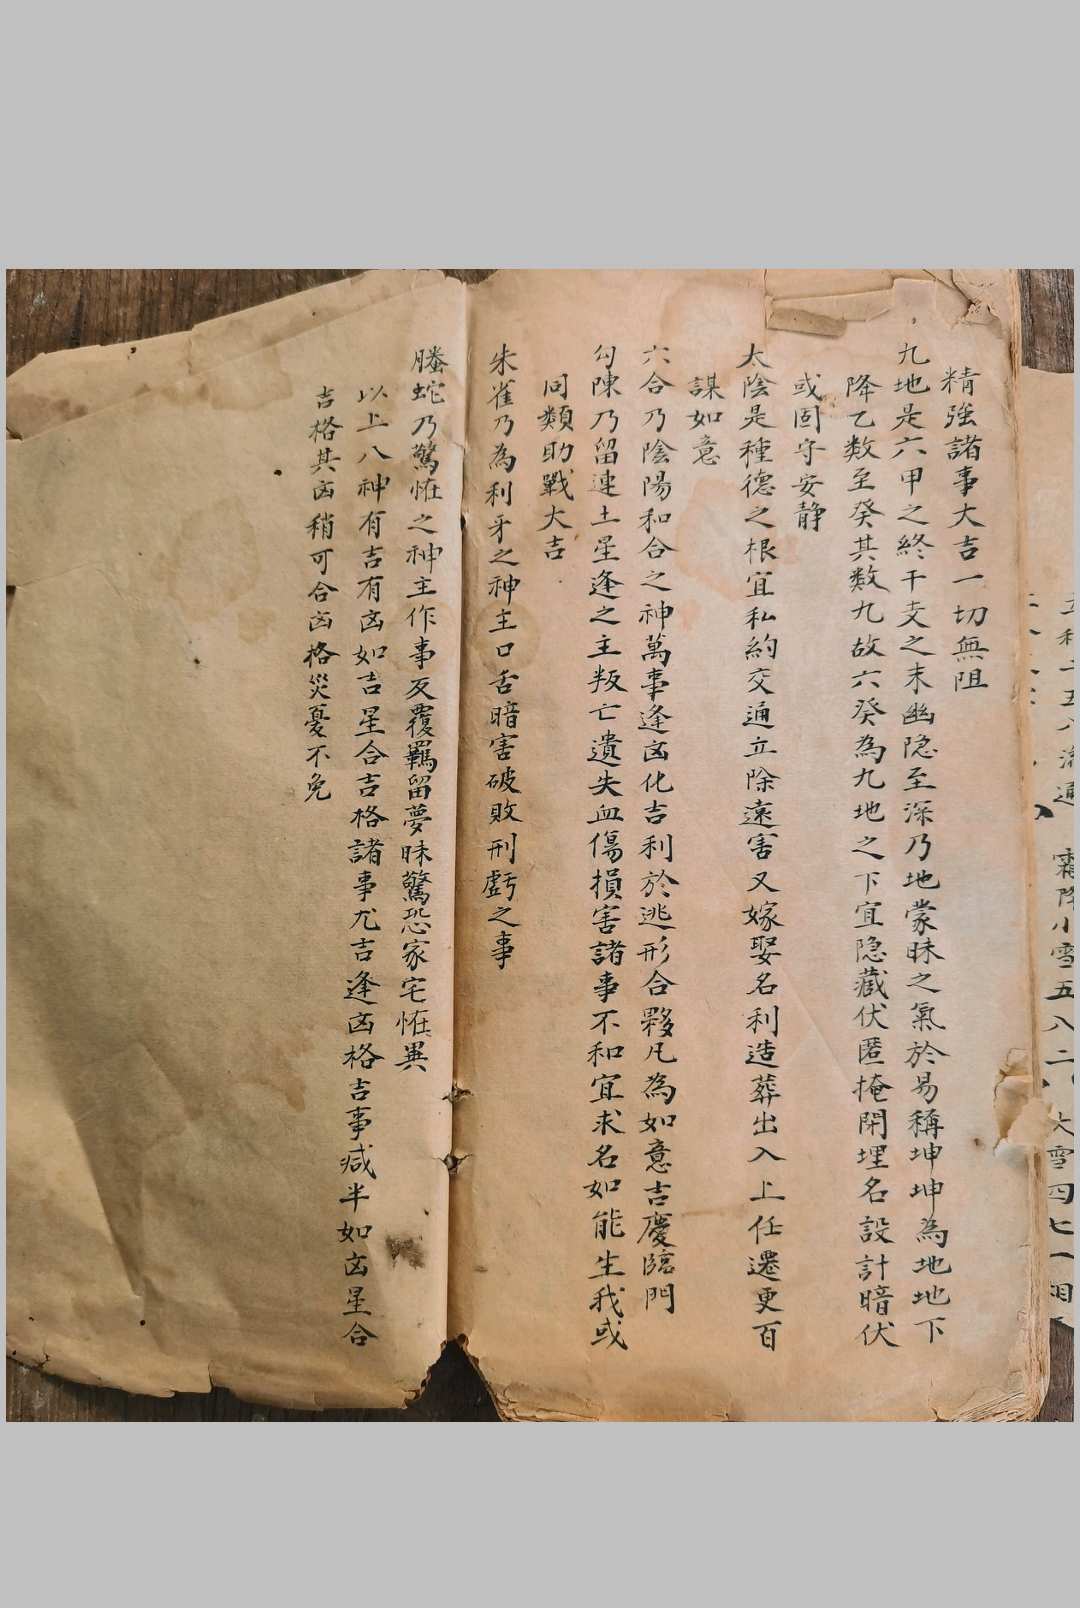 精強諸事大吉一切無阻
九地是六甲之終干支之末幽隐至深乃地蒙昧之氣於易稱坤坤為地地下
降乙数至癸其数九故六癸為九地之下宜隐藏伏匿掩閉埋名設計暗伏
或固守安静
太陰是種德之根宜私約交通立除遠害又嫁娶名利造葬出入上任遷更百
謀如意
六合乃陰陽和合之神萬事逢凶化吉利於逃形合夥凡為如意吉慶臨門
勾陳乃留連土星逢之主叛亡遺失血傷損害諸事不和宜求名如能生我或
同類助戰大吉
朱雀乃為利牙之神主口舌暗害破敗刑虧之事
螣蛇乃驚恠之神主作事反覆羈留夢昧驚恐家宅恠異
以上八神有吉有凶如吉星合吉格諸事尤吉逢凶格吉事减半如凶星合
吉格其凶稍可合凶格災憂不免
霜降小雪五八二
大雪四七一相